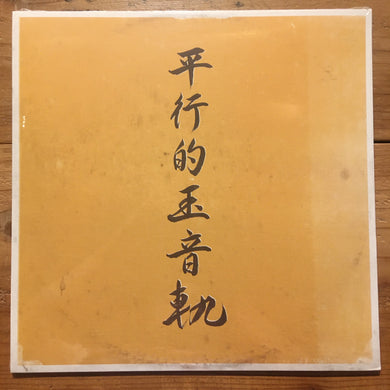 平行的玉音軌